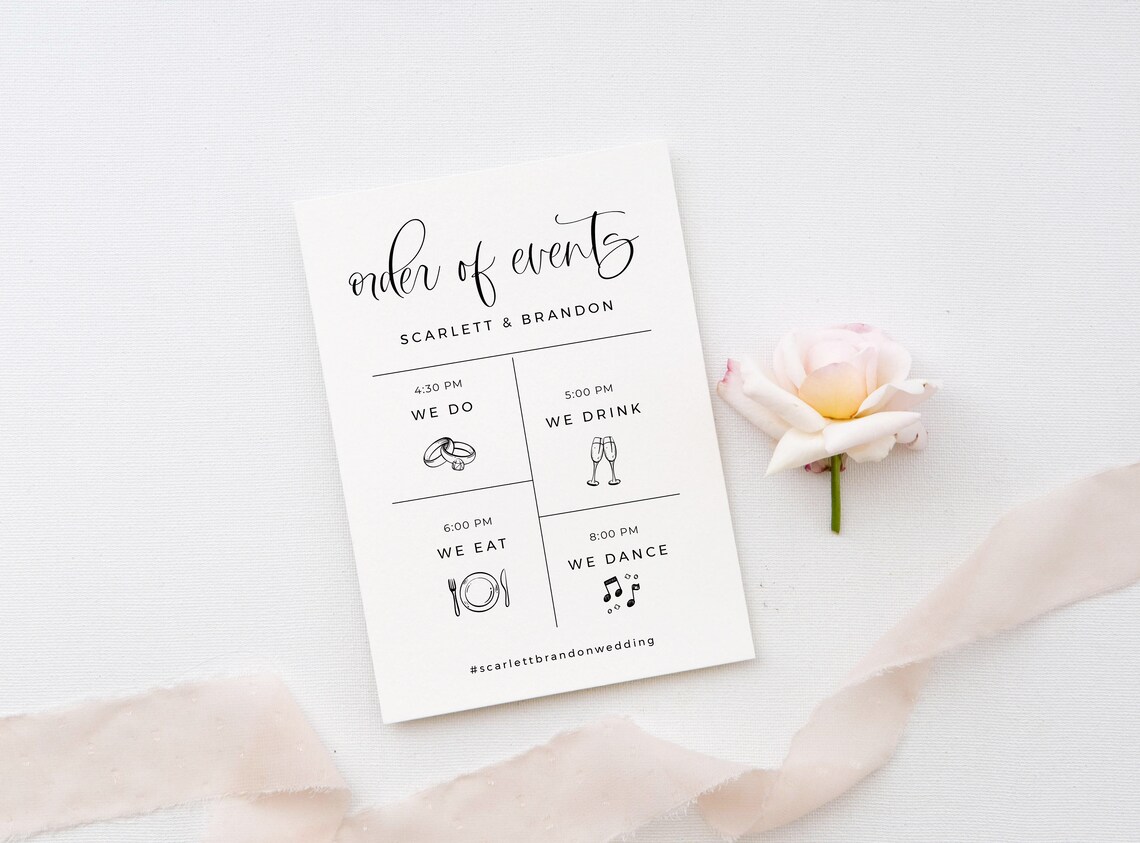 order of events
SCARLETT & BRANDON
4:30 PM
WE DO
5:00 PM
WE DRINK
6:00 PM
WE EAT
8:00 PM
WE DANCE
#scarlettbrandonwedding